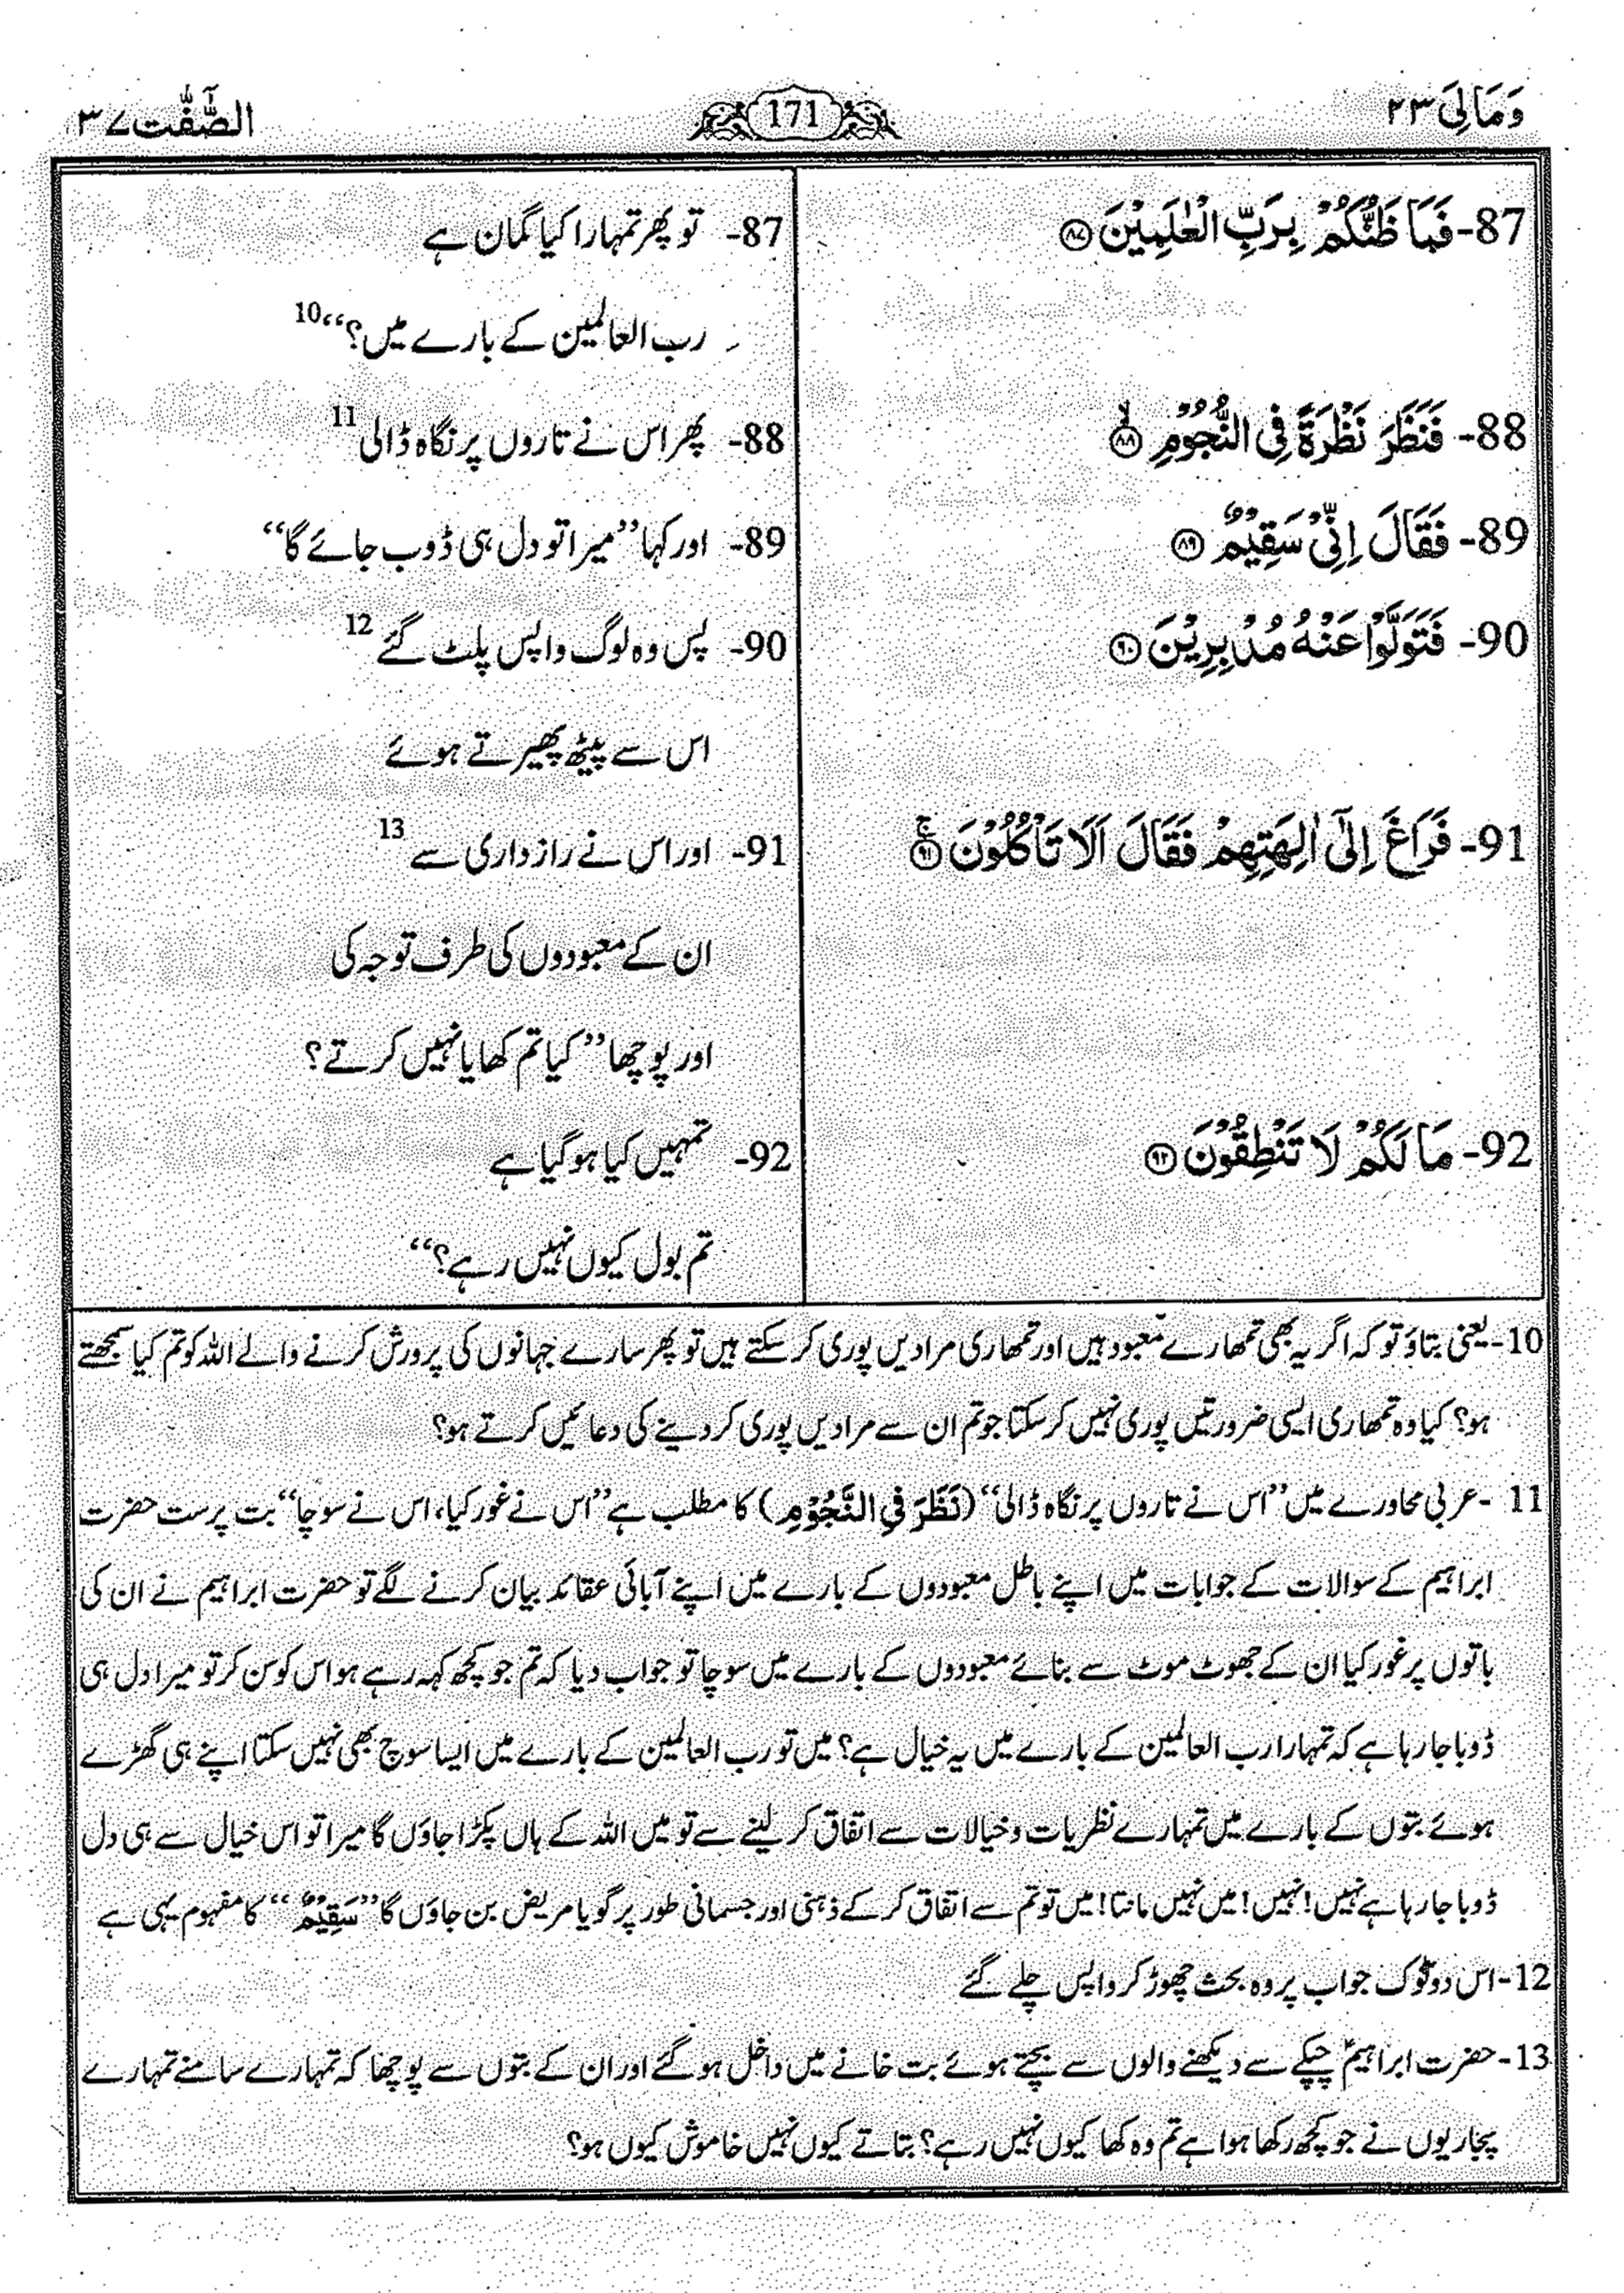 وَمَالِیَ ٢٣
171
الصّٰٓفّٰت ٣٧
87- فَمَا ظَنُّكُمْ بِرَبِّ الْعٰلَمِیْنَ ﴿٨٧﴾
88- فَنَظَرَ نَظْرَةً فِی النُّجُوْمِ ۙ﴿٨٨﴾
89- فَقَالَ اِنِّیْ سَقِیْمٌ ﴿٨٩﴾
90- فَتَوَلَّوْا عَنْهُ مُدْبِرِیْنَ ﴿٩٠﴾
91- فَرَاغَ اِلٰٓی اٰلِهَتِهِمْ فَقَالَ اَلَا تَاْكُلُوْنَ ۚ﴿٩١﴾
92- مَا لَكُمْ لَا تَنْطِقُوْنَ ﴿٩٢﴾
87- تو پھر تمہارا کیا گمان ہے
رب العالمین کے بارے میں؟‘‘ 10
88- پھر اس نے تاروں پر نگاہ ڈالی 11
89- اور کہا ’’میرا تو دل ہی ڈوب جائے گا‘‘
90- پس وہ لوگ واپس پلٹ گئے 12
اس سے پیٹھ پھیرتے ہوئے
91- اور اس نے رازداری سے 13
ان کے معبودوں کی طرف توجہ کی
اور پوچھا ’’کیا تم کھایا نہیں کرتے؟
92- تمہیں کیا ہوگیا ہے
تم بول کیوں نہیں رہے؟‘‘
10- یعنی بتاؤ تو کہ اگر یہ بھی تمھارے معبود ہیں اور تمھاری مرادیں پوری کر سکتے ہیں تو پھر سارے جہانوں کی پرورش کرنے والے اللہ کو تم کیا سمجھتے
ہو؟ کیا وہ تمھاری ایسی ضرورتیں پوری نہیں کر سکتا جو تم ان سے مرادیں پوری کر دینے کی دعائیں کرتے ہو؟
11- عربی محاورے میں ’’اس نے تاروں پر نگاہ ڈالی‘‘ (نَظَرَ فِی النُّجُوْمِ) کا مطلب ہے ’’اس نے غور کیا، اس نے سوچا‘‘ بت پرست حضرت
ابراہیم کے سوالات کے جوابات میں اپنے باطل معبودوں کے بارے میں اپنے آبائی عقائد بیان کرنے لگے تو حضرت ابراہیم نے ان کی
باتوں پر غور کیا ان کے جھوٹ موٹ سے بنائے معبودوں کے بارے میں سوچا تو جواب دیا کہ تم جو کچھ کہہ رہے ہو اس کو سن کر تو میرا دل ہی
ڈوبا جا رہا ہے کہ تمہارا رب العالمین کے بارے میں یہ خیال ہے؟ میں تو رب العالمین کے بارے میں ایسا سوچ بھی نہیں سکتا اپنے ہی گھڑے
ہوئے بتوں کے بارے میں تمہارے نظریات و خیالات سے اتفاق کر لینے سے تو میں اللہ کے ہاں پکڑا جاؤں گا میرا تو اس خیال سے ہی دل
ڈوبا جا رہا ہے نہیں! نہیں! میں نہیں مانتا! میں تو تم سے اتفاق کر کے ذہنی اور جسمانی طور پر گویا مریض بن جاؤں گا ’’سَقِیْمٌ‘‘ کا مفہوم یہی ہے
12- اس دوٹوک جواب پر وہ بحث چھوڑ کر واپس چلے گئے
13- حضرت ابراہیمؑ چپکے سے دیکھنے والوں سے بچتے ہوئے بت خانے میں داخل ہو گئے اور ان کے بتوں سے پوچھا کہ تمہارے سامنے تمہارے
پجاریوں نے جو کچھ رکھا ہوا ہے تم وہ کھا کیوں نہیں رہے؟ بتاتے کیوں نہیں خاموش کیوں ہو؟